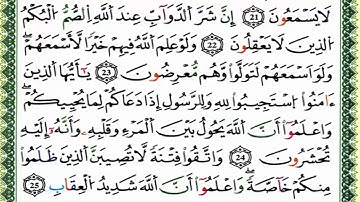 لَا يَسْمَعُونَ 21 إِنَّ شَرَّ الدَّوَآبِّ عِندَ اللَّهِ الصُّمُّ الْبُكْمُ
الَّذِينَ لَا يَعْقِلُونَ 22 وَلَوْ عَلِمَ اللَّهُ فِيهِمْ خَيْرًا لَّأَسْمَعَهُمْ ۖ
وَلَوْ أَسْمَعَهُمْ لَتَوَلَّوا وَّهُم مُّعْرِضُونَ 23 يَٰٓأَيُّهَا الَّذِينَ
ءَامَنُوا اسْتَجِيبُوا لِلَّهِ وَلِلرَّسُولِ إِذَا دَعَاكُمْ لِمَا يُحْيِيكُمْ ۖ
وَاعْلَمُوٓا أَنَّ اللَّهَ يَحُولُ بَيْنَ الْمَرْءِ وَقَلْبِهِ وَأَنَّهُۥٓ إِلَيْهِ
تُحْشَرُونَ 24 وَاتَّقُوا فِتْنَةً لَّا تُصِيبَنَّ الَّذِينَ ظَلَمُوا
مِنكُمْ خَآصَّةً ۖ وَاعْلَمُوٓا أَنَّ اللَّهَ شَدِيدُ الْعِقَابِ 25